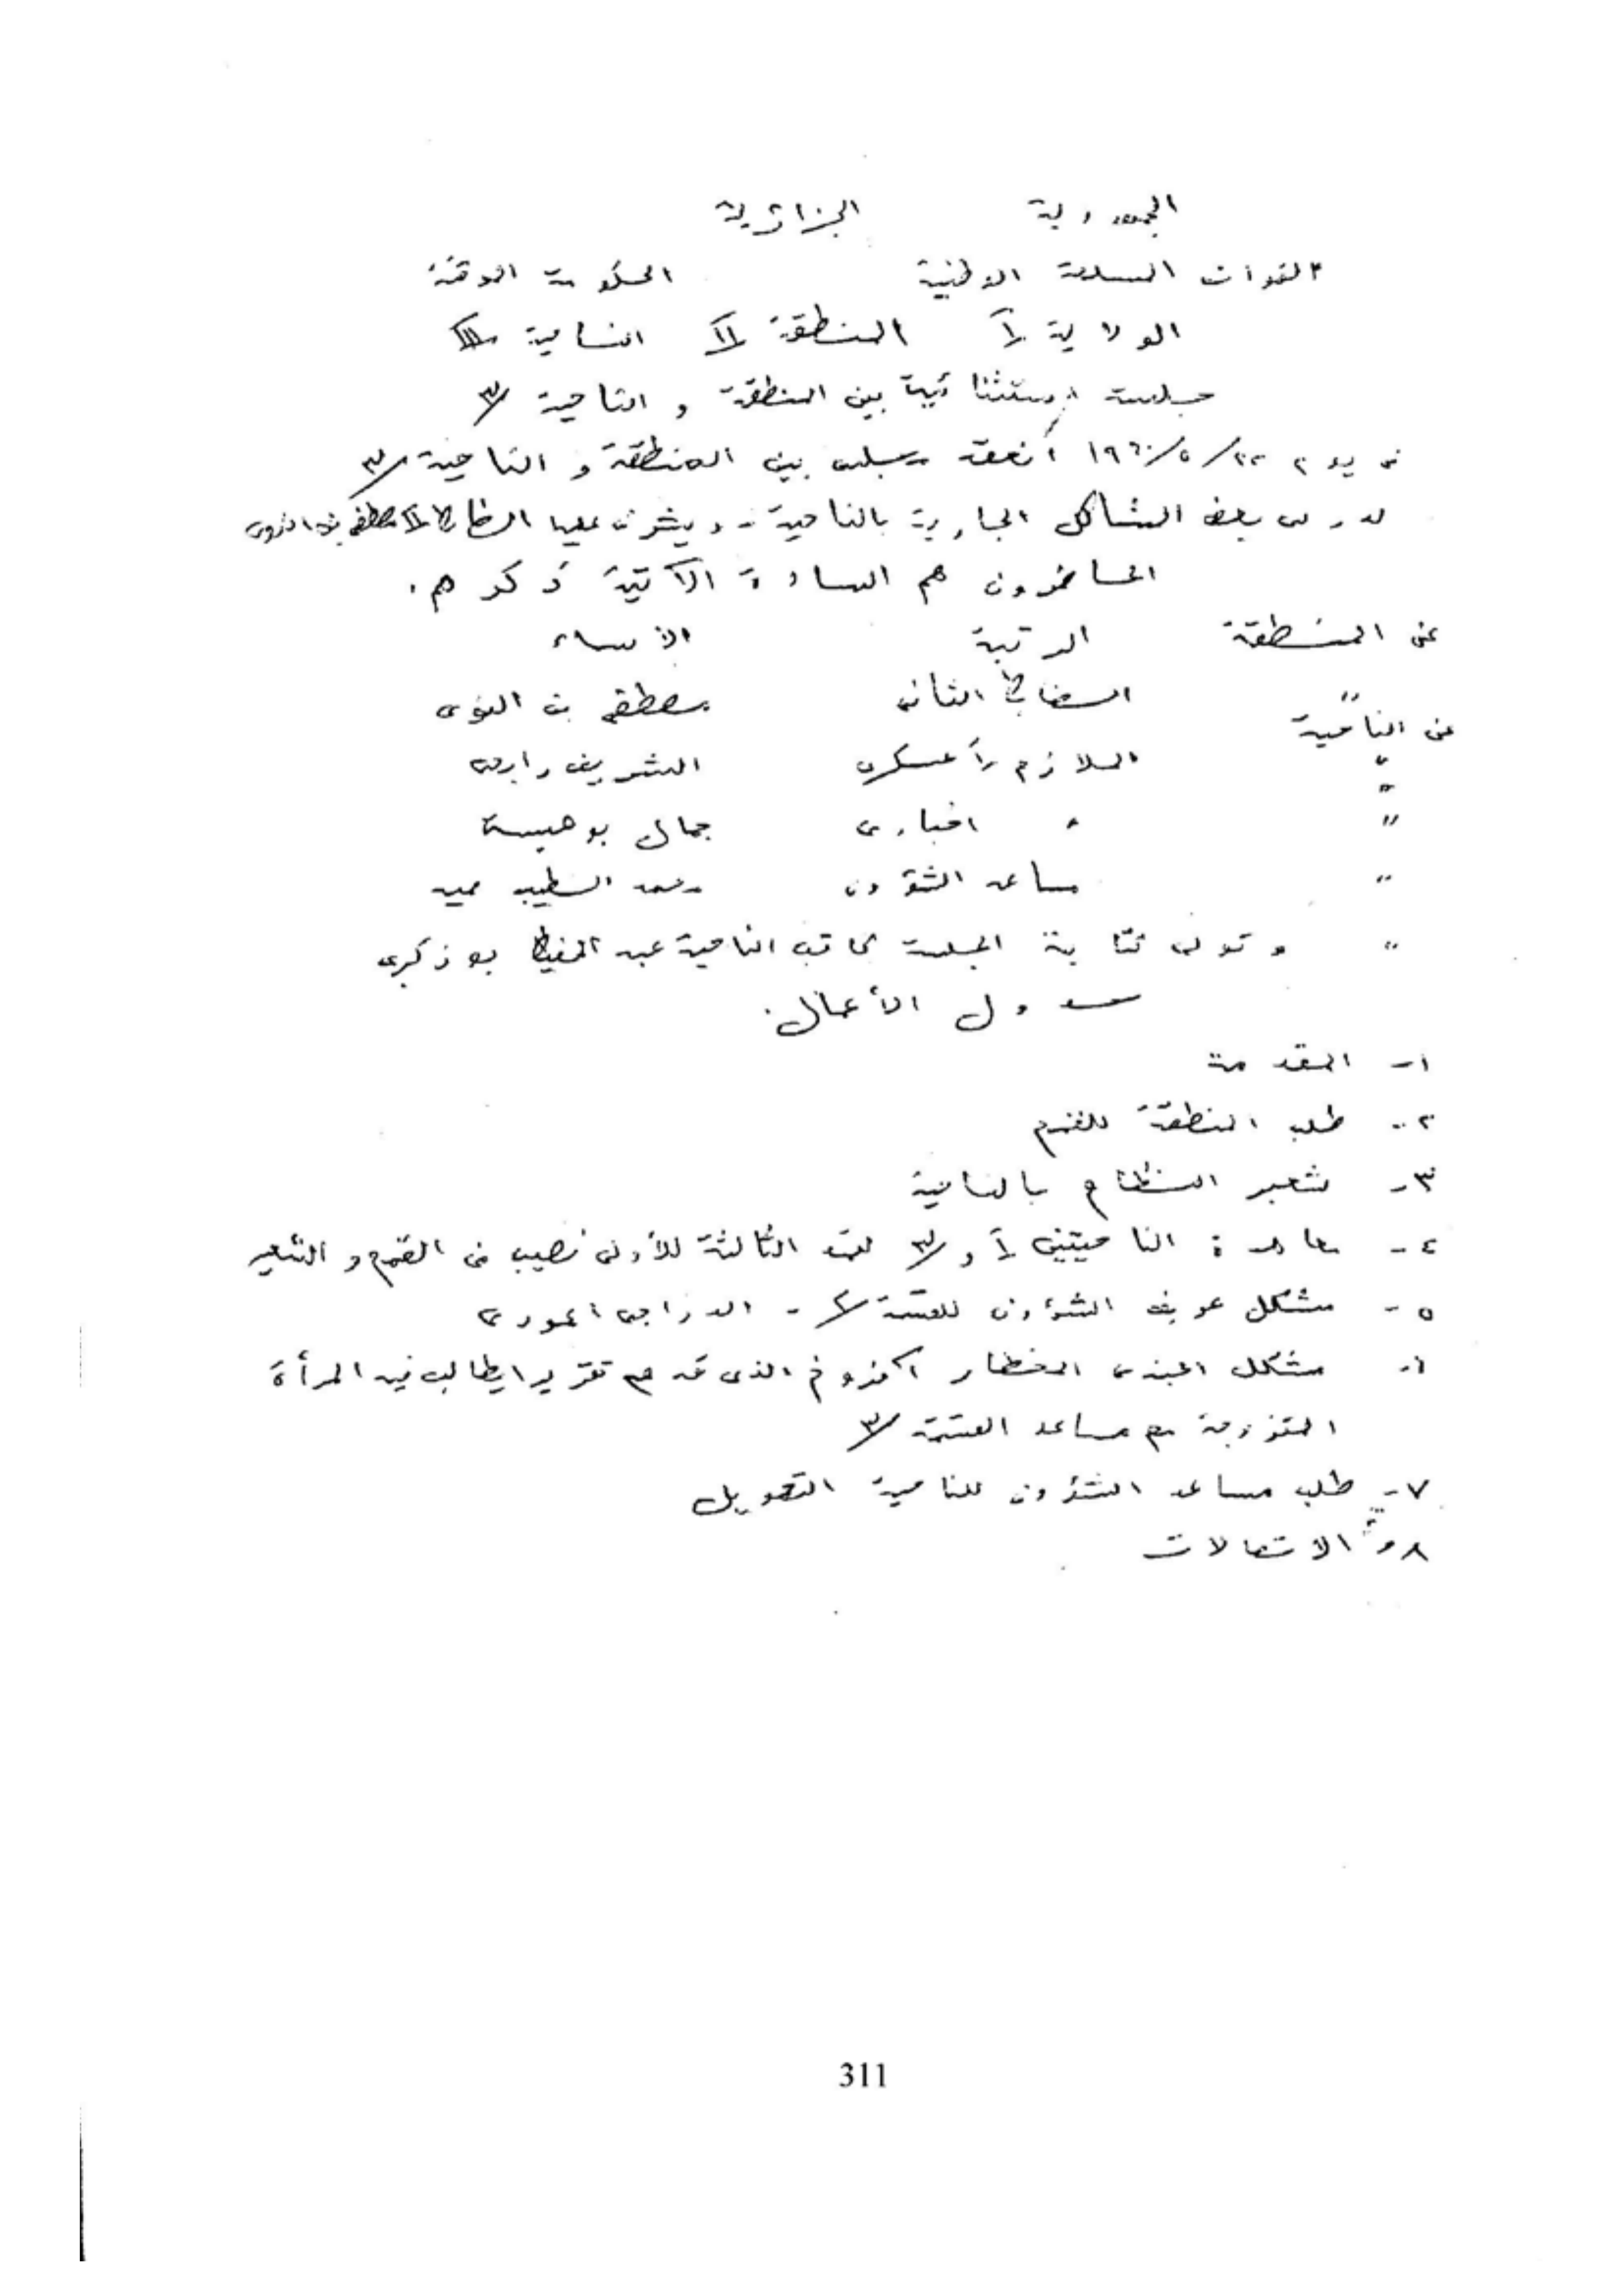 الجمهورية الجزائرية
القوات المسلحة الوطنية الحكومة المؤقتة
الولاية المنطقة الناحية
جلسة استثنائية بين المنطقة و الناحية /٣
في يوم ٢٢/٥/١٩٦٠ انعقد مجلس بين المنطقة و الناحية /٣
لدرس بعض المشاكل الجارية بالناحية - ويشرف عليها الضابط مصطفى بن النوى
الحاضرون هم السادة الآتية ذكرهم.
عن المنطقة الرتبة الأسماء
" الضابط الثاني مصطفى بن النوى
عن الناحية
" الملازم عسكري الشريف رابحي
"
" " اخباري جمال بوهيسة
" مساعد الشؤون محمد الطيب
" و تولى كتابة الجلسة كاتب الناحية عبد الحفيظ بوزكري
جدول الأعمال.
١- المقدمة
٢- طلب المنطقة
٣- النظام بالناحية
٤- الناحيتين و /٣ الثالثة للأولى نصيب من و
٥- مشكل عريف الشؤون للقسمة - الدراجي
٦- مشكل الجندي الذي قدم تقريرا يطالب فيه المرأة
المتزوجة مع مساعد القسمة /٣
٧- طلب مساعد الشؤون للناحية التحويل
٨- الاتصالات
311